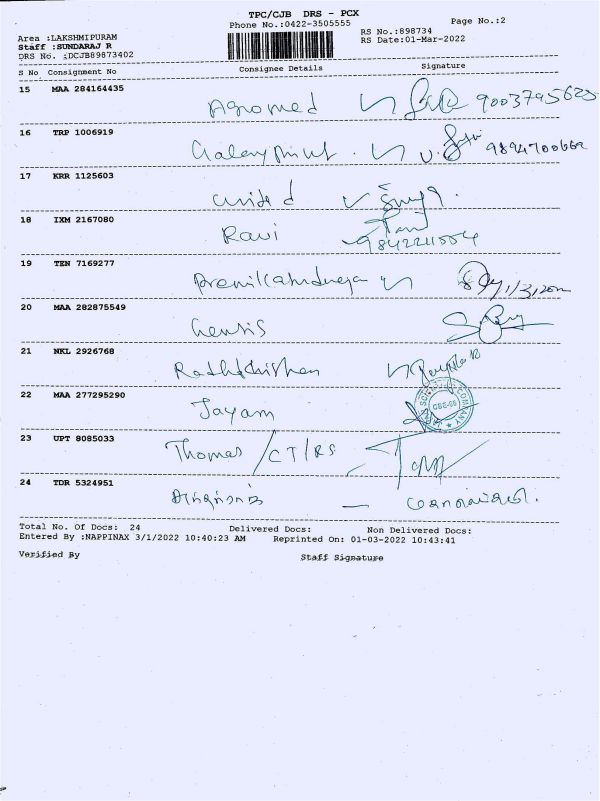 TPC/CJB DRS - PCX
Phone No.:0422-3505555
Page No.:2
Area :LAKSHMIPURAM
Staff :SUNDARAJ R
DRS No. :DCJB89873402
RS No.:898734
RS Date:01-Mar-2022
S No Consignment No Consignee Details Signature
15 MAA 284164435
Agromed 9003795625
16 TRP 1006919
9894700662
17 KRR 1125603
United
18 IXM 2167080
Ravi
9842211554
19 TEN 7169277
1/3/2022
20 MAA 282875549
21 NKL 2926768
22 MAA 277295290
Jayam
23 UPT 8085033
Thomas /CT/RS
24 TDR 5324951
Total No. Of Docs: 24 Delivered Docs: Non Delivered Docs:
Entered By :NAPPINAX 3/1/2022 10:40:23 AM Reprinted On: 01-03-2022 10:43:41
Verified By Staff Signature